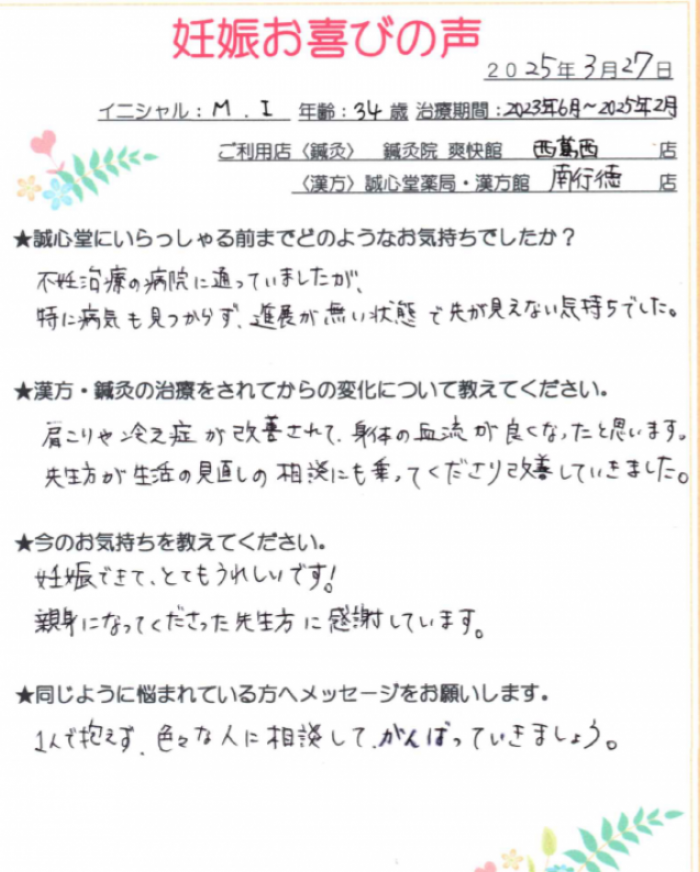 妊娠お喜びの声
2025年3月27日
イニシャル：M.I 年齢：34歳 治療期間：2023年6月～2025年2月
ご利用店〈鍼灸〉 鍼灸院 爽快館 西葛西 店
〈漢方〉誠心堂薬局・漢方館 南行徳 店
★誠心堂にいらっしゃる前までどのようなお気持ちでしたか？
不妊治療の病院に通っていましたが、
特に病気も見つからず、進展が無い状態で先が見えない気持ちでした。
★漢方・鍼灸の治療をされてからの変化について教えてください。
肩こりや冷え症が改善されて、身体の血流が良くなったと思います。
先生方が生活の見直しの相談にも乗ってくださり改善していきました。
★今のお気持ちを教えてください。
妊娠できて、とてもうれしいです！
親身になってくださった先生方に感謝しています。
★同じように悩まれている方へメッセージをお願いします。
1人で抱えず、色々な人に相談して、がんばっていきましょう。